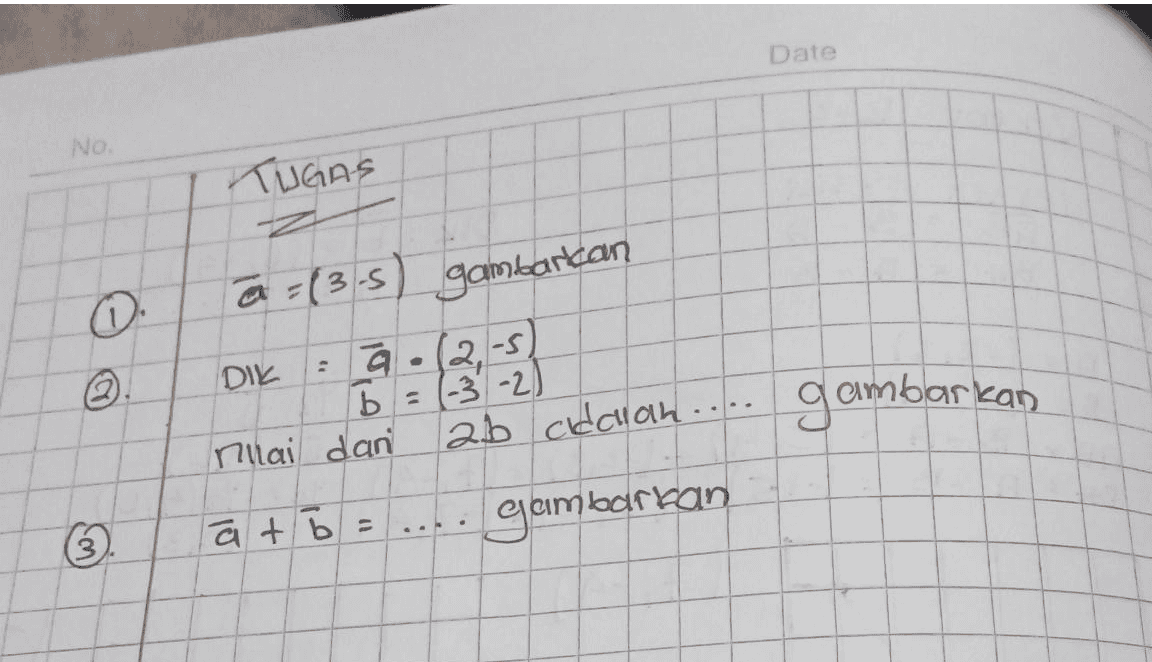 Date
No.
TUGAS
①. a̅ = (3 -5) gambarkan
②. DIK : a̅ = (2, -5)
b̅ = (-3 -2)
nilai dari 2b adalah .... gambarkan
③. a̅ + b̅ = .... gambarkan